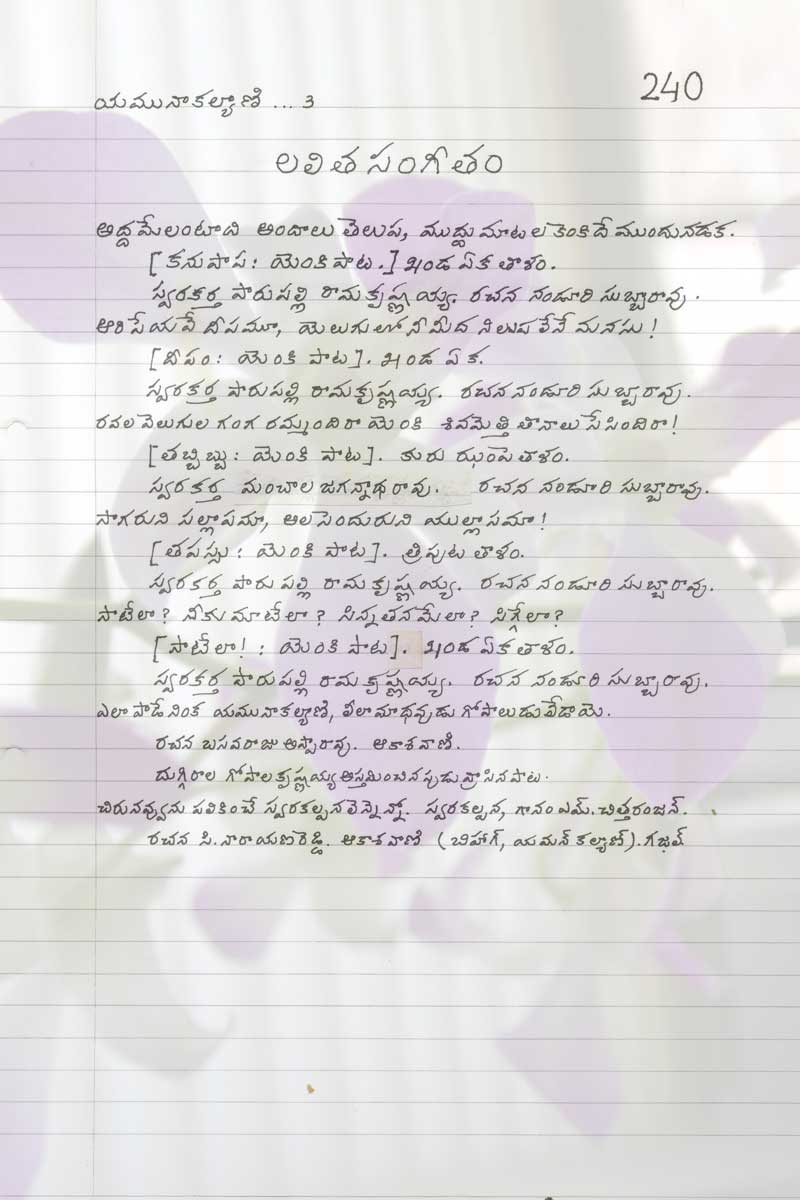 యమునాకల్యాణి ... 3
240
లలితసంగీతం
అద్దమేలంటూది అందాలు తెలుప, ముద్దు మాటలకెంకిదే ముందునడక.
[కనుపాప: యెంకిపాట.] ఖండ ఏకతాళం.
స్వరకర్త పారుపల్లి రామకృష్ణయ్య. రచన నండూరి సుబ్బారావు.
ఆరిసేయవే దీపమూ, యెలుగులో నీమీద నిలుపలేనే మనసు!
[దీపం: యెంకి పాట]. ఖండ ఏక.
స్వరకర్త పారుపల్లి రామకృష్ణయ్య. రచన నండూరి సుబ్బారావు.
రవల వెలుగుల గంగ రమ్మందిరా యెంకి శివమెత్తి తానాలు సేసిందిరా!
[తబ్బిబ్బు: యెంకి పాట]. కురు ఝంపెతాళం.
స్వరకర్త మంచాల జగన్నాథరావు. రచన నండూరి సుబ్బారావు.
సాగరుని సల్లాపమా, అల సెందురుని యుల్లాసమా!
[తపస్సు: యెంకి పాట]. త్రిపుట తాళం.
స్వరకర్త పారుపల్లి రామకృష్ణయ్య. రచన నండూరి సుబ్బారావు.
సాటేలా? నీకు మాటేలా? సిన్నతనమేలా? సిగ్గేలా?
[సాటేలా! : యెంకి పాట]. ఖండ ఏకతాళం.
స్వరకర్త పారుపల్లి రామకృష్ణయ్య. రచన నండూరి సుబ్బారావు.
ఎలా పాడేనింక యమునాకల్యాణి, లీలామాధవుడు గోపాలుడు లేడాయె.
రచన బసవరాజు అప్పారావు. ఆకాశవాణి.
దుగ్గిరాల గోపాలకృష్ణయ్య అస్తమించినపుడు వ్రాసినపాట.
చిరునవ్వును పలికించే స్వరకల్పనలెన్నెన్నో. స్వరకల్పన, గానం ఎమ్. చిత్తరంజన్.
రచన సి. నారాయణరెడ్డి. ఆకాశవాణి (బిహాగ్, యమన్ కల్యాణ్). గజల్